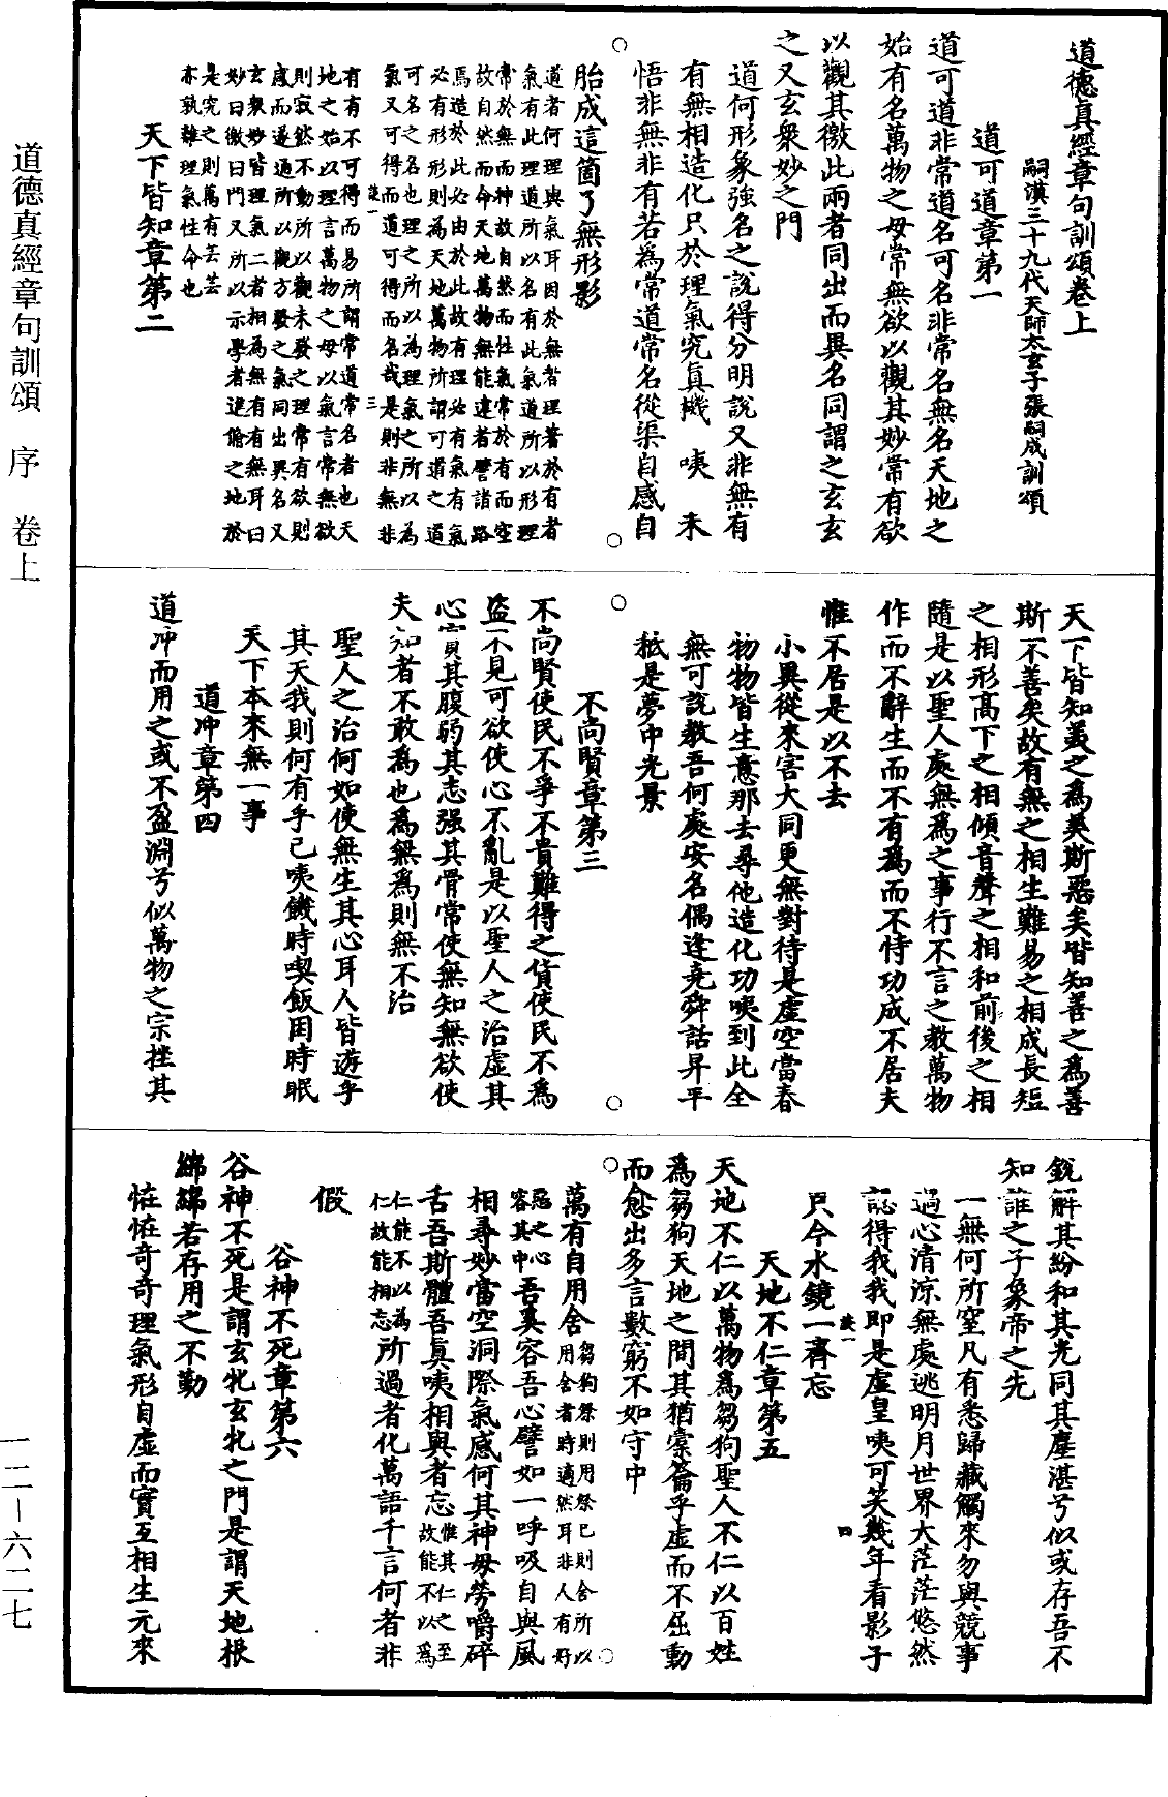 道德真經章句訓頌卷上
嗣漢三十九代天師太玄子張嗣成訓頌
道可道章第一
道可道非常道名可名非常名無名天地之
始有名萬物之母常無欲以觀其妙常有欲
以觀其徼此兩者同出而異名同謂之玄玄
之又玄衆妙之門
道何形象強名之說得分明說又非無有
有無相造化只於理氣究真機 咦 未
悟非無非有若為常道常名從渠自感自
胎成這箇了無形影
道者何理與氣耳因於無者理著於有者
氣有此理道所以名有此氣道所以形理
常於無而神故自然而性氣常於有而空
故自然而命天地萬物無能違者譬諸路
焉造於此必由於此故有理必有氣有氣
必有形形則為天地萬物所謂可道之道
可名之名也理之所以為理氣之所以為
氣又可得而道可得而名哉是則非無非
有有不可得而易所謂常道常名者也天
地之始以理言萬物之母以氣言常無欲
則寂然不動所以觀未發之理常有欲則
感而遂通所以觀方發之氣同出異名又
玄衆妙皆理氣二者相為無有有無耳曰
妙曰徼曰門又所以示學者進脩之地於
是究之則萬有芸芸
亦孰離理氣性命也
天下皆知章第二
天下皆知美之為美斯惡矣皆知善之為善
斯不善矣故有無之相生難易之相成長短
之相形高下之相傾音聲之相和前後之相
隨是以聖人處無為之事行不言之教萬物
作而不辭生而不有為而不恃功成不居夫
惟不居是以不去
小異從來害大同更無對待是虛空當春
物物皆生意那去尋他造化功咦到此全
無可說教吾何處安名偶逢堯舜話昇平
秖是夢中光景
不尚賢章第三
不尚賢使民不爭不貴難得之貨使民不為
盜不見可欲使心不亂是以聖人之治虛其
心實其腹弱其志強其骨常使無知無欲使
夫知者不敢為也為無為則無不治
聖人之治何如使無生其心耳人皆遊乎
其天我則何有乎己咦饑時喫飯困時眠
天下本來無一事
道冲章第四
道冲而用之或不盈淵兮似萬物之宗挫其
銳解其紛和其光同其塵湛兮似或存吾不
知誰之子象帝之先
一無何所窒凡有悉歸藏觸來勿與競事
過心清涼無處逃明月世界大茫茫悠然
認得我我即是虛皇咦可笑幾年看影子
只今水鏡一齊忘
天地不仁章第五
天地不仁以萬物為芻狗聖人不仁以百姓
為芻狗天地之間其猶橐籥乎虛而不屈動
而愈出多言數窮不如守中
萬有自用舍芻狗祭則用祭已則舍所以
用舍者時適然耳非人有好
惡之心
容其中吾奚容吾心譬如一呼吸自與風
相尋妙當空洞際氣感何其神毋勞嚼碎
舌吾斯體吾真咦相與者忘惟其仁之至
故能不以為
仁能不以為
仁故能相忘所過者化萬語千言何者非
假
谷神不死章第六
谷神不死是謂玄牝玄牝之門是謂天地根
綿綿若存用之不勤
恠恠奇奇理氣形自虛而實互相生元來
道德真經章句訓頌 序 卷上
一二－六二七